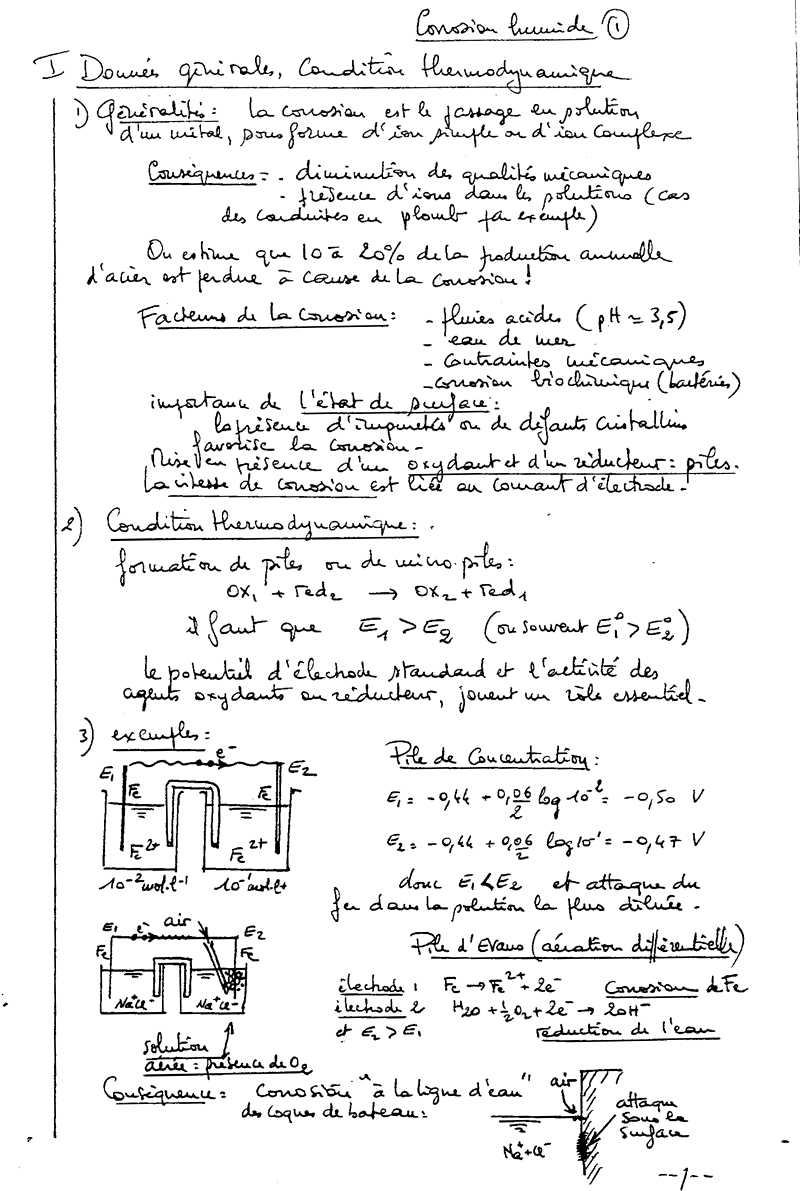 Corrosion humide ①
I Données générales, Condition thermodynamique
1) Généralités : la corrosion est le passage en solution
d'un métal, sous forme d'ion simple ou d'ion complexe
Conséquences = . diminution des qualités mécaniques
- présence d'ions dans les solutions (cas
des conduites en plomb par exemple)
On estime que 10 à 20% de la production annuelle
d'acier est perdue à cause de la corrosion !
Facteurs de la corrosion : - pluies acides (pH ≃ 3,5)
- eau de mer
- contraintes mécaniques
- corrosion biochimique (bactéries)
importance de l'état de surface :
la présence d'impuretés ou de défauts cristallins
favorise la corrosion -
Mise en présence d'un oxydant et d'un réducteur = piles.
La vitesse de corrosion est liée au courant d'électrode -
2) Condition thermodynamique : .
formation de piles ou de micro-piles :
ox₁ + red₂ → ox₂ + red₁
il faut que E₁ > E₂ (ou souvent E₁° > E₂°)
le potentiel d'électode standard et l'activité des
agents oxydants ou réducteur, jouent un rôle essentiel -
3) exemples :
e⁻
E₁ E₂
Fe Fe
Fe²⁺ Fe²⁺
10⁻² mol.l⁻¹ 10⁻¹ mol.l⁻¹
Pile de Concentration :
E₁ = -0,44 + 0,06/2 log 10⁻² = -0,50 V
E₂ = -0,44 + 0,06/2 log 10⁻¹ = -0,47 V
donc E₁ < E₂ et attaque du
fer dans la solution la plus diluée -
Pile d'Evans (aération différentielle)
E₁ e⁻ air E₂
Fe Fe
Na⁺Cl⁻ Na⁺Cl⁻
solution
aérée = présence de O₂
électode 1 Fe → Fe²⁺ + 2e⁻ Corrosion de Fe
électode 2 H₂O + ½O₂ + 2e⁻ → 2OH⁻
et E₂ > E₁ réduction de l'eau
Conséquence = corrosion "à la ligne d'eau"
des coques de bateau :
air
attaque
sous la
surface
Na⁺Cl⁻
--1--